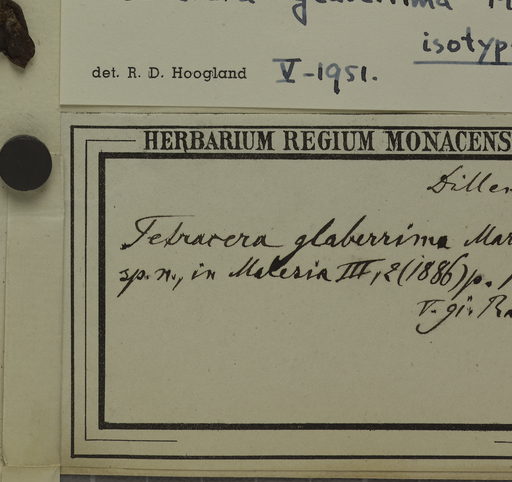 glaberrima
isotyp
det. R. D. Hoogland V-1951.
HERBARIUM REGIUM MONACENS
Dillen
Tetracera glaberrima Mar
sp. n., in Malesia III, 2 (1886) p. 1